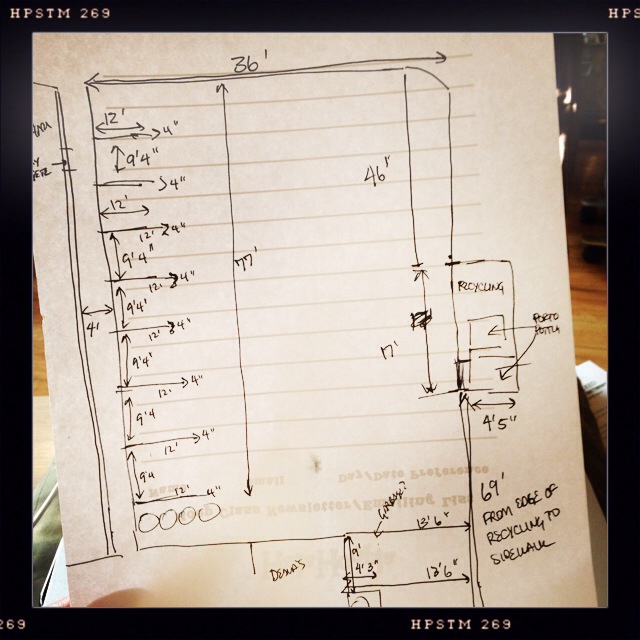 HPSTM 269
36'
12'
4"
9'4"
4"
46"
12'
4"
12'
9'4"
77'
4"
12'
RECYCLING
4'
9'4'
4"
12'
PORTO
POTTY
9'4'
17'
4"
12'
9'4
4'5"
4"
12'
9'4
12'
4"
69'
FROM EDGE OF
RECYCLING TO
SIDEWALK
13'6"
9'
4'3"
13'6"
Day/Date Preference
Email
Name
Class Newsletter/Emailing List
269
HPSTM 269